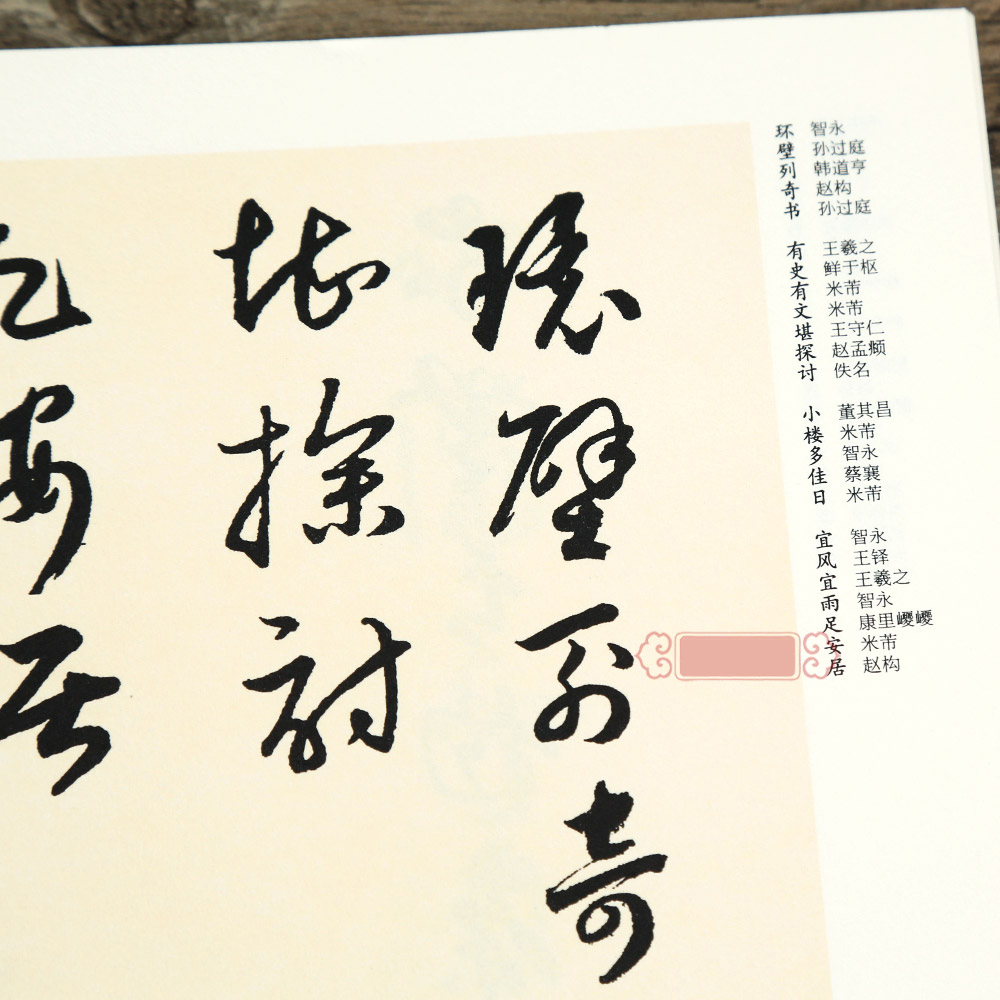 環壁列奇
堪探討
足安居
环 智永
壁 孙过庭
列 韩道亨
奇 赵构
书 孙过庭
有 王羲之
史 鲜于枢
有 米芾
文 米芾
堪 王守仁
探 赵孟頫
讨 佚名
小 董其昌
楼 米芾
多 智永
佳 蔡襄
日 米芾
宜 智永
风 王铎
宜 王羲之
雨 智永
足 康里巎巎
安 米芾
居 赵构